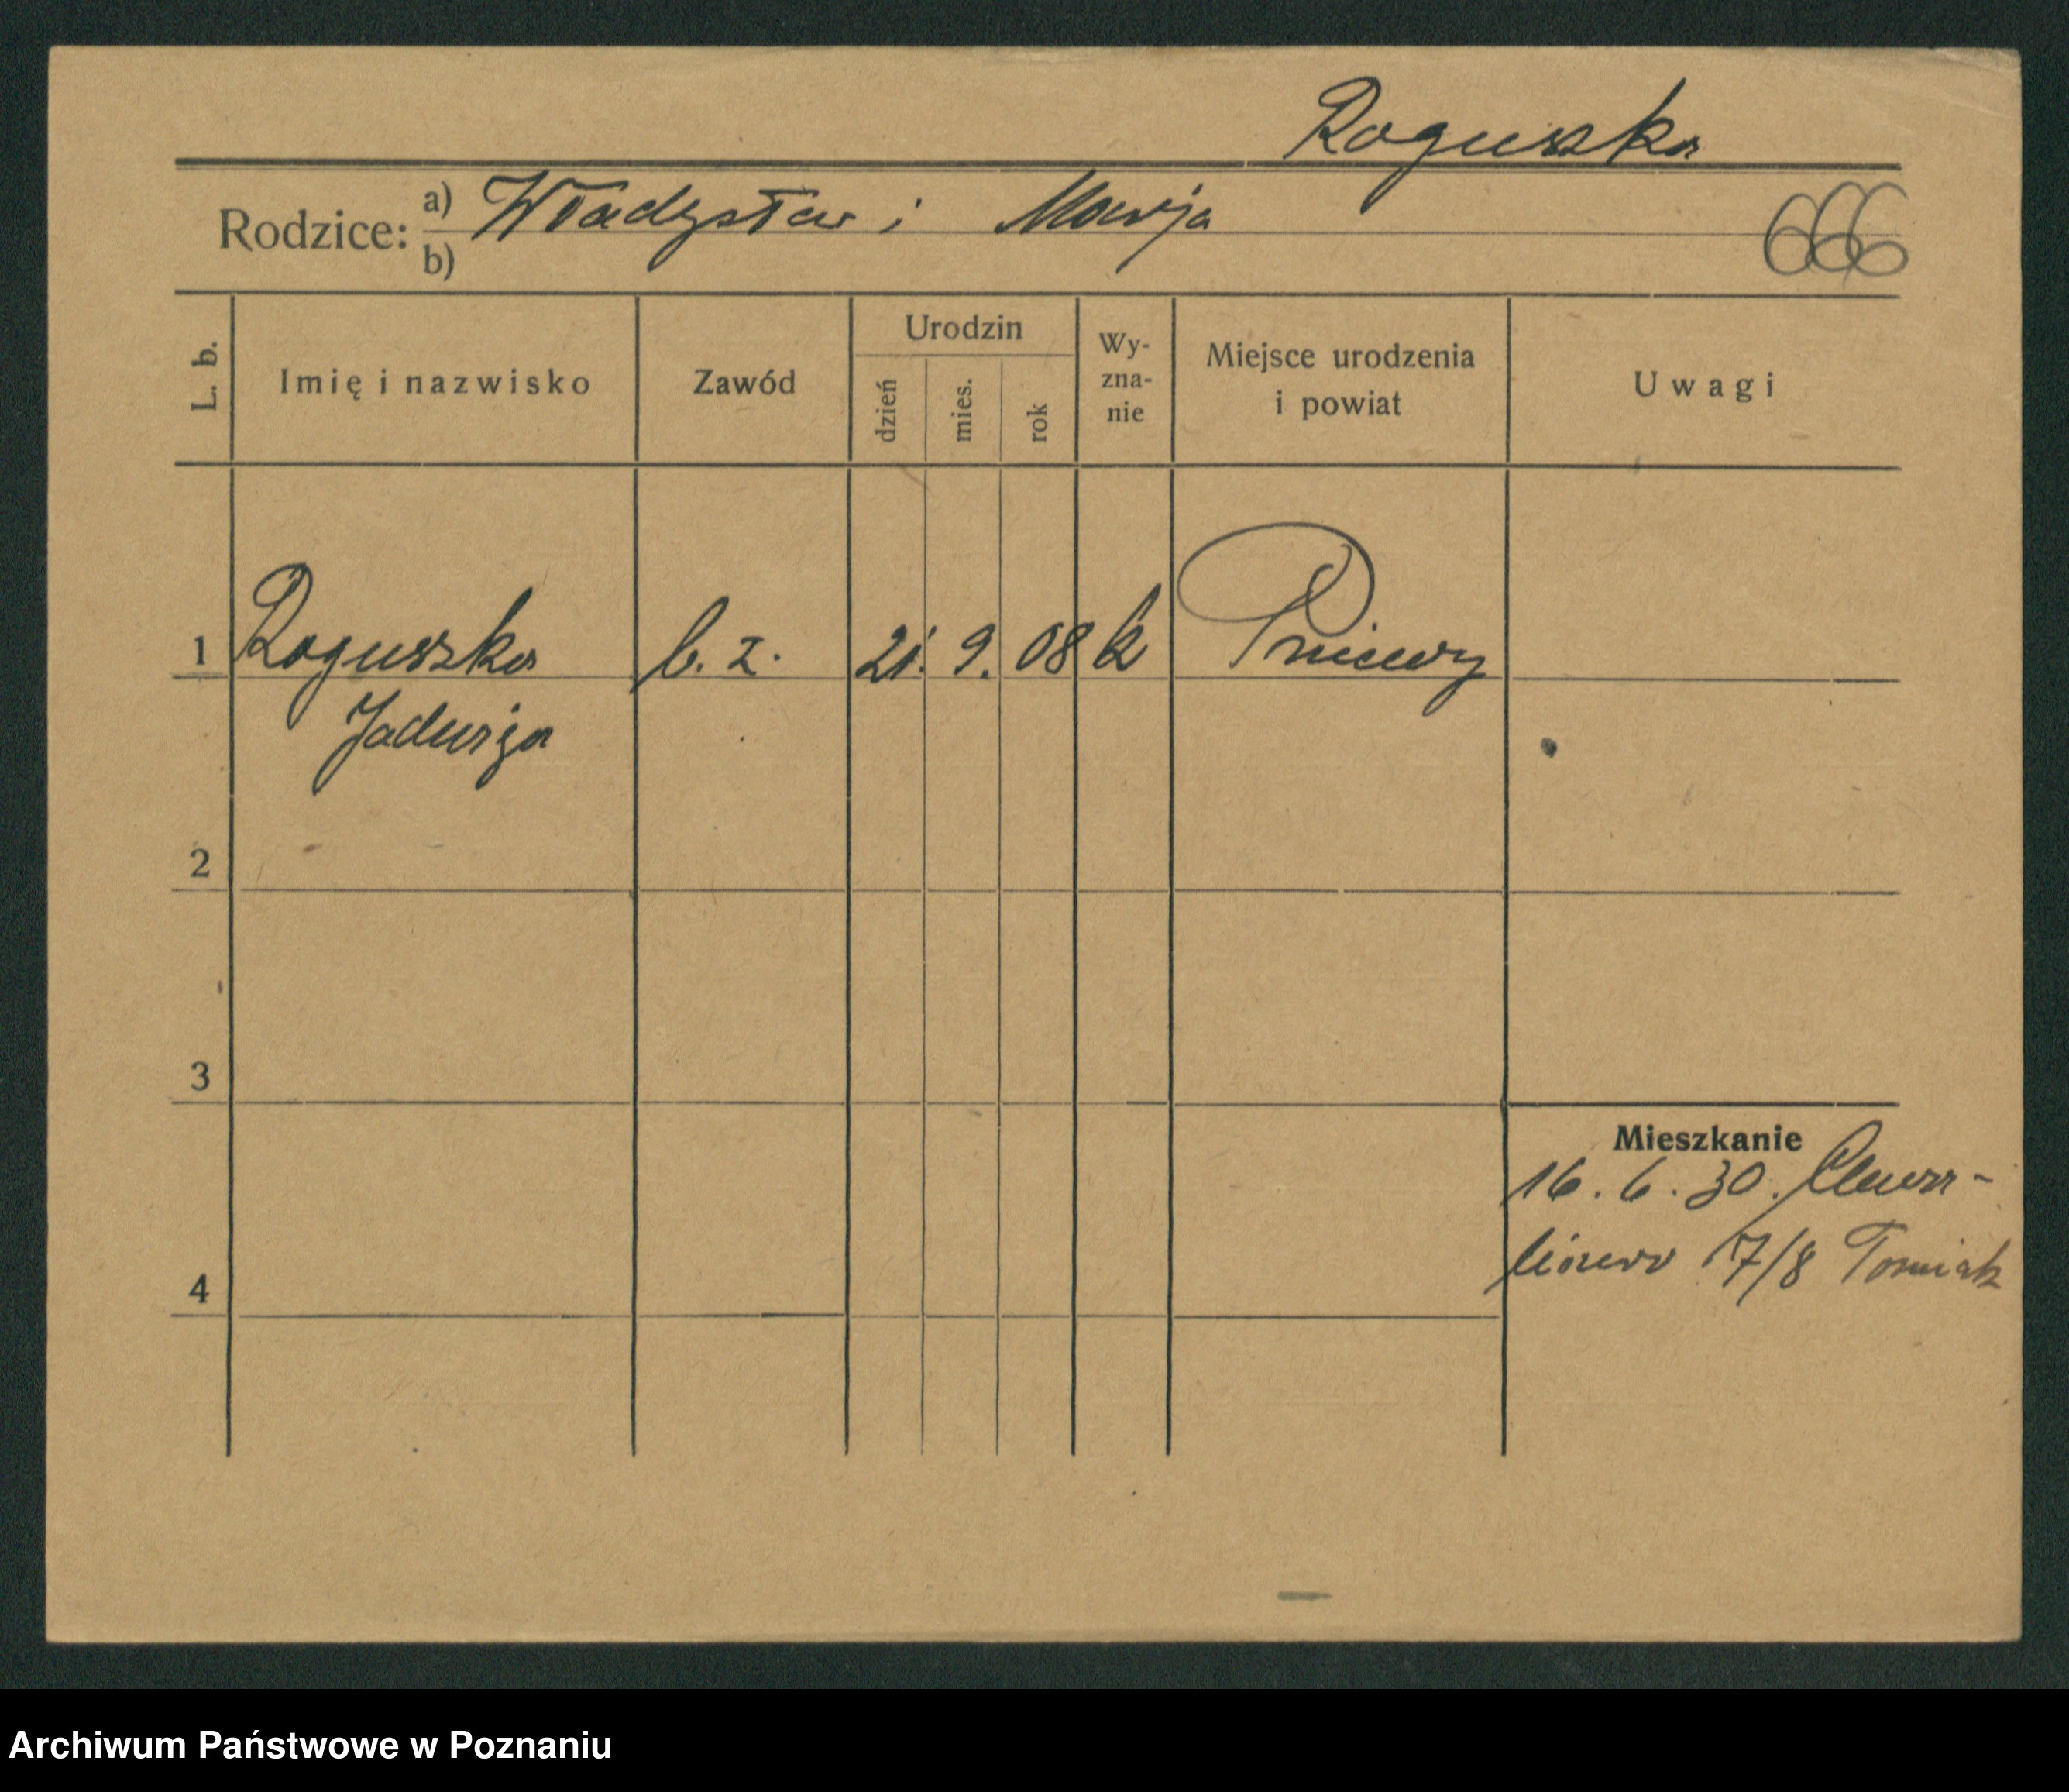 Roguszka
Rodzice: a) Władysław i Marja
b)
666
L. b.
Imię i nazwisko
Zawód
Urodzin
dzień
mies.
rok
Wy-
zna-
nie
Miejsce urodzenia
i powiat
Uwagi
1 Roguszka b. z. 21. 9. 08 k Pniewy
Jadwiga
2
3
Mieszkanie
16. 6. 30.
17/8 Tomiak
4
Archiwum Państwowe w Poznaniu